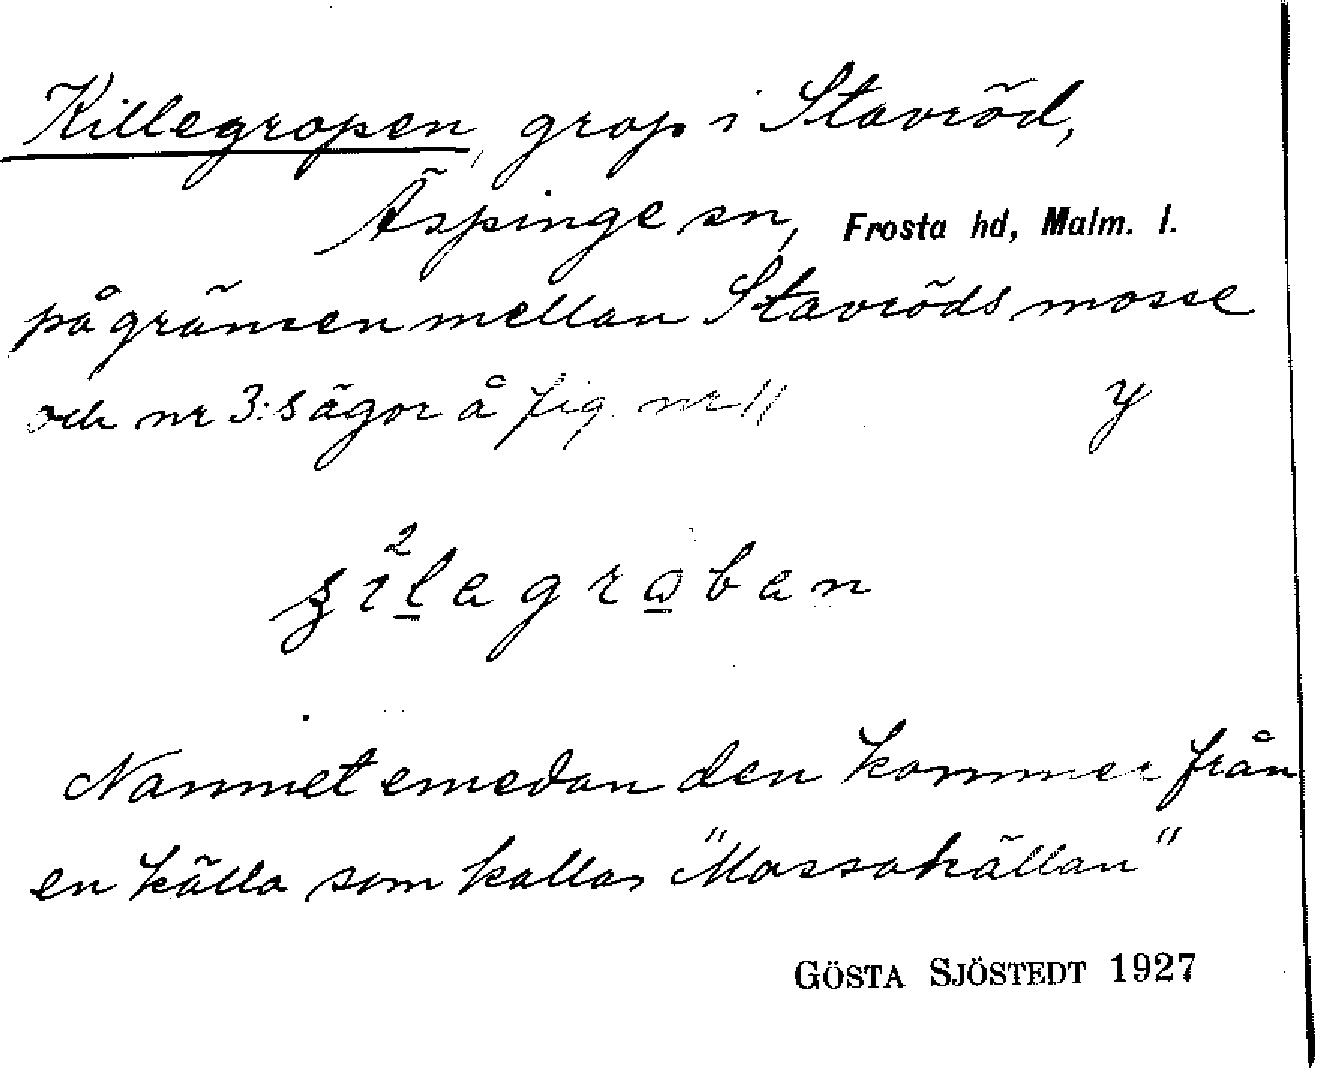 Killegropen, grop i Stavröd,
Äspinge sn, Frosta hd, Malm. l.
på gränsen mellan Stavröds mosse
och nr 3:s ägor å fig. nr 11 y
Namnet emedan den kommer från
en källa som kallas "Mossakällan"
GÖSTA SJÖSTEDT 1927